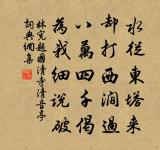 水從東塔來
却打西澗過
八萬四千偈
為我細說破
林寃題國清寺清音亭
詞典網集